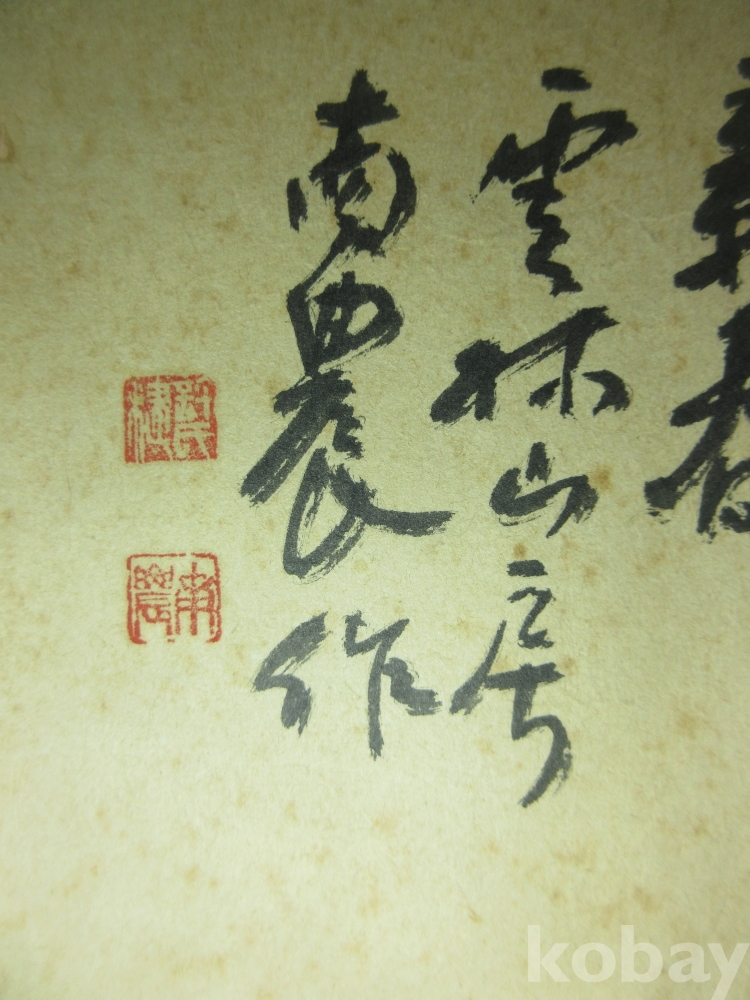 雲林山房
南農作
南農
kobay